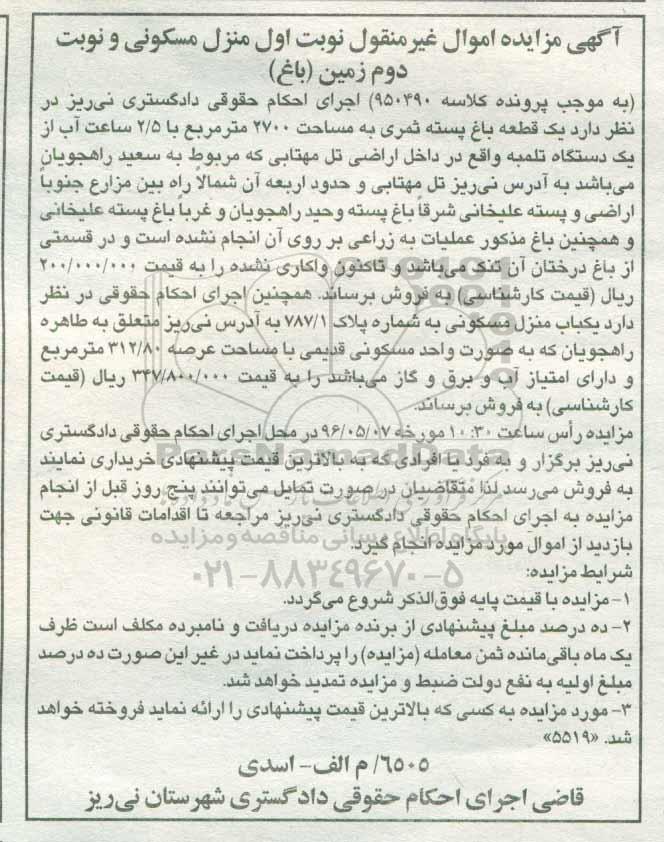 آگهی مزایده اموال غیرمنقول نوبت اول منزل مسکونی و نوبت
دوم زمین (باغ)
(به موجب پرونده کلاسه ۹۵۰۴۹۰) اجرای احکام حقوقی دادگستری نی‌ریز در
نظر دارد یک قطعه باغ پسته ثمری به مساحت ۲۷۰۰ مترمربع با ۲/۵ ساعت آب از
یک دستگاه تلمبه واقع در داخل اراضی تل مهتابی که مربوط به سعید راهجویان
می‌باشد به آدرس نی‌ریز تل مهتابی و حدود اربعه آن شمالاً راه بین مزارع جنوباً
اراضی و پسته علیخانی شرقاً باغ پسته وحید راهجویان و غرباً باغ پسته علیخانی
و همچنین باغ مذکور عملیات به زراعی بر روی آن انجام نشده است و در قسمتی
از باغ درختان آن تنک می‌باشد و تاکنون واکاری نشده را به قیمت ۲۰۰/۰۰۰/۰۰۰
ریال (قیمت کارشناسی) به فروش برساند. همچنین اجرای احکام حقوقی در نظر
دارد یکباب منزل مسکونی به شماره پلاک ۷۸۷/۱ به آدرس نی‌ریز متعلق به طاهره
راهجویان که به صورت واحد مسکونی قدیمی با مساحت عرصه ۳۱۲/۸۰ مترمربع
و دارای امتیاز آب و برق و گاز می‌باشد را به قیمت ۳۴۷/۸۰۰/۰۰۰ ریال (قیمت
کارشناسی) به فروش برساند.
مزایده رأس ساعت ۱۰:۳۰ مورخه ۹۶/۰۵/۰۷ در محل اجرای احکام حقوقی دادگستری
نی‌ریز برگزار و به فرد یا افرادی که به بالاترین قیمت پیشنهادی خریداری نمایند
به فروش می‌رسد لذا متقاضیان در صورت تمایل می‌توانند پنج روز قبل از انجام
مزایده به اجرای احکام حقوقی دادگستری نی‌ریز مراجعه تا اقدامات قانونی جهت
بازدید از اموال مورد مزایده انجام گیرد.
پایگاه اطلاع رسانی مناقصه و مزایده
۰۲۱-۸۸۳۴۹۶۷۰-۵
شرایط مزایده:
۱- مزایده با قیمت پایه فوق‌الذکر شروع می‌گردد.
۲- ده درصد مبلغ پیشنهادی از برنده مزایده دریافت و نامبرده مکلف است ظرف
یک ماه باقی‌مانده ثمن معامله (مزایده) را پرداخت نماید در غیر این صورت ده درصد
مبلغ اولیه به نفع دولت ضبط و مزایده تمدید خواهد شد.
۳- مورد مزایده به کسی که بالاترین قیمت پیشنهادی را ارائه نماید فروخته خواهد
شد. «۵۵۱۹»
۶۵۰۵/ م الف- اسدی
قاضی اجرای احکام حقوقی دادگستری شهرستان نی‌ریز